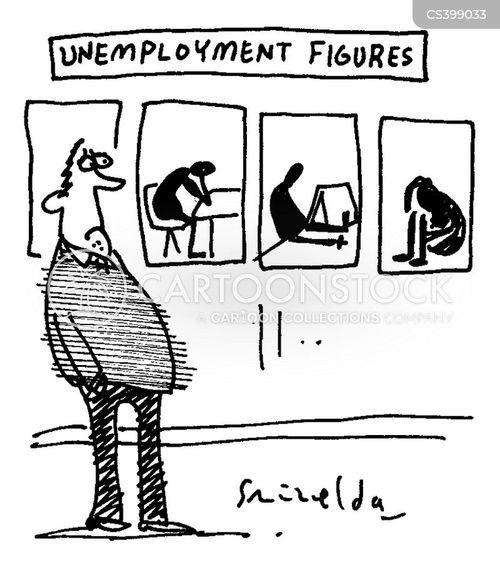 CS399033
UNEMPLOYMENT FIGURES
CARTOONSTOCK
A CARTOON COLLECTIONS COMPANY
Grizelda